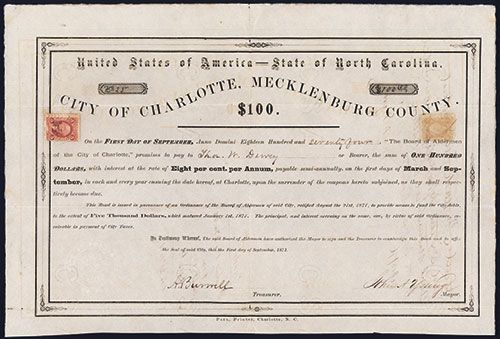 United States of America—State of North Carolina.
CITY OF CHARLOTTE, MECKLENBURG COUNTY.
$100.
On the FIRST DAY OF SEPTEMBER, Anno Domini Eighteen Hundred and seventy four "The Board of Aldermen
of the City of Charlotte," promises to pay to Thos. W. Dewey or Bearer, the sum of ONE HUNDRED
DOLLARS, with interest at the rate of Eight per cent. per Annum, payable semi-annually, on the first days of March and Sep-
tember, in each and every year ensuing the date hereof, at Charlotte, upon the surrender of the coupons hereto subjoined, as they shall respec-
tively become due.
This Bond is issued in pursuance of an Ordinance of the Board of Aldermen of said city, ratified August 21st, 1871, to provide means to fund the City debts
to the extent of Five Thousand Dollars, which matured January 1st, 1871. The principal, and interest accruing on the same, are, by virtue of said Ordinance, re-
ceivable in payment of City Taxes.
In Testimony Whereof, The said Board of Aldermen have authorized the Mayor to sign and the Treasurer to countersign this Bond and to affix
the Seal of said City, this the First day of September, 1871.
Treasurer.
Mayor.
Printer, Charlotte, N. C.